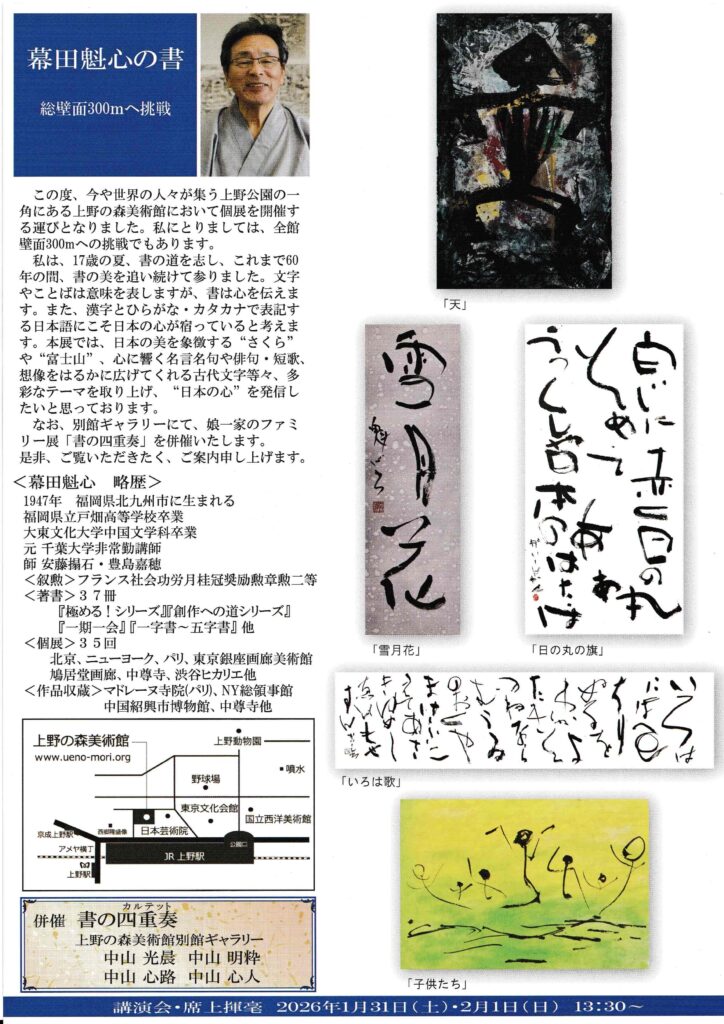 幕田魁心の書
総壁面300mへ挑戦
この度、今や世界の人々が集う上野公園の一
角にある上野の森美術館において個展を開催す
る運びとなりました。私にとりましては、全館
壁面300mへの挑戦でもあります。
私は、17歳の夏、書の道を志し、これまで60
年の間、書の美を追い続けて参りました。文字
やことばは意味を表しますが、書は心を伝えま
す。また、漢字とひらがな・カタカナで表記す
る日本語にこそ日本の心が宿っていると考えま
す。本展では、日本の美を象徴する“さくら”
や“富士山”、心に響く名言名句や俳句・短歌、
想像をはるかに広げてくれる古代文字等々、多
彩なテーマを取り上げ、“日本の心”を発信し
たいと思っております。
なお、別館ギャラリーにて、娘一家のファミ
リー展「書の四重奏」を併催いたします。
是非、ご覧いただきたく、ご案内申し上げます。
＜幕田魁心　略歴＞
1947年　福岡県北九州市に生まれる
福岡県立戸畑高等学校卒業
大東文化大学中国文学科卒業
元 千葉大学非常勤講師
師 安藤搨石・豊島嘉穂
＜叙勲＞フランス社会功労月桂冠奨励勲章勲二等
＜著書＞３７冊
『極める！シリーズ』『創作への道シリーズ』
『一期一会』『一字書～五字書』他
＜個展＞３５回
北京、ニューヨーク、パリ、東京銀座画廊美術館
鳩居堂画廊、中尊寺、渋谷ヒカリエ他
＜作品収蔵＞マドレーヌ寺院(パリ)、NY総領事館
中国紹興市博物館、中尊寺他
上野の森美術館
www.ueno-mori.org
上野動物園
噴水
野球場
東京文化会館
国立西洋美術館
西郷隆盛像
日本芸術院
京成上野駅
公園口
アメヤ横丁
JR 上野駅
上野駅
カルテット
併催 書の四重奏
上野の森美術館別館ギャラリー
中山 光晨 中山 明粋
中山 心路 中山 心人
「天」
雪月花
魁心
「雪月花」
白い
日の丸
「日の丸の旗」
いろは
「いろは歌」
「子供たち」
講演会・席上揮毫 2026年1月31日(土)・2月1日(日) 13:30～